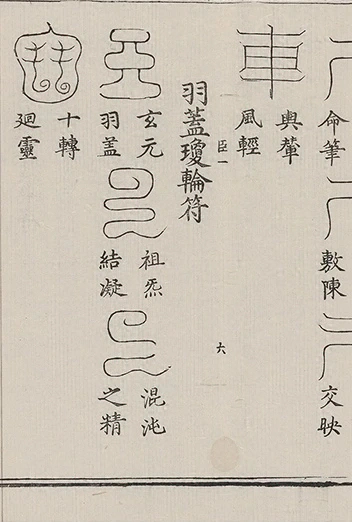 命筆
敷陳
交映
輿輦
風輕
臣一
六
羽蓋瓊輪符
玄元
羽盖
祖炁
結凝
混沌
之精
十轉
廻靈